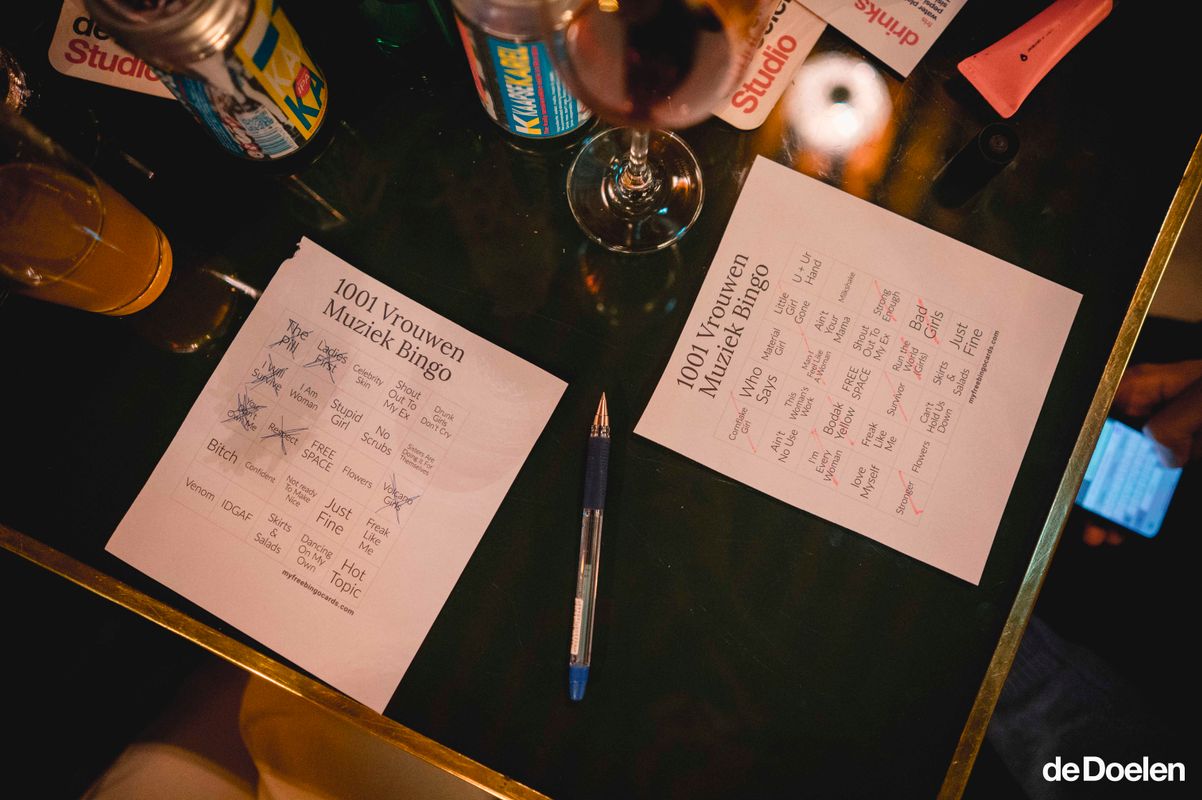 de
Studio
KA
KAAPSE KAREL
Studio
drinks
1001 Vrouwen
Muziek Bingo
The
Pill
Ladies
First
Celebrity
Skin
Shout
Out To
My Ex
Drunk
Girls
Don't Cry
I Will
Survive
I Am
Woman
Stupid
Girl
No
Scrubs
Sisters Are
Doing It For
Themselves
You
Don't
Own Me
Respect
FREE
SPACE
Flowers
Volcano
Girls
Bitch
Confident
Not ready
To Make
Nice
Just
Fine
Freak
Like
Me
Venom
IDGAF
Skirts
&
Salads
Dancing
On My
Own
Hot
Topic
myfreebingocards.com
1001 Vrouwen
Muziek Bingo
Little
Girl
Gone
U + Ur
Hand
Material
Girl
Ain't
Your
Mama
Milkshake
Who
Says
Man I
Feel Like
A Woman
Shout
Out To
My Ex
Strong
Enough
Cornflake
Girl
This
Woman's
Work
FREE
SPACE
Run the
World
(Girls)
Bad
Girls
Ain't
No Use
Bodak
Yellow
Survivor
Skirts
&
Salads
Just
Fine
I'm
Every
Woman
Freak
Like
Me
Can't
Hold Us
Down
love
Myself
Flowers
Stronger
myfreebingocards.com
de Doelen